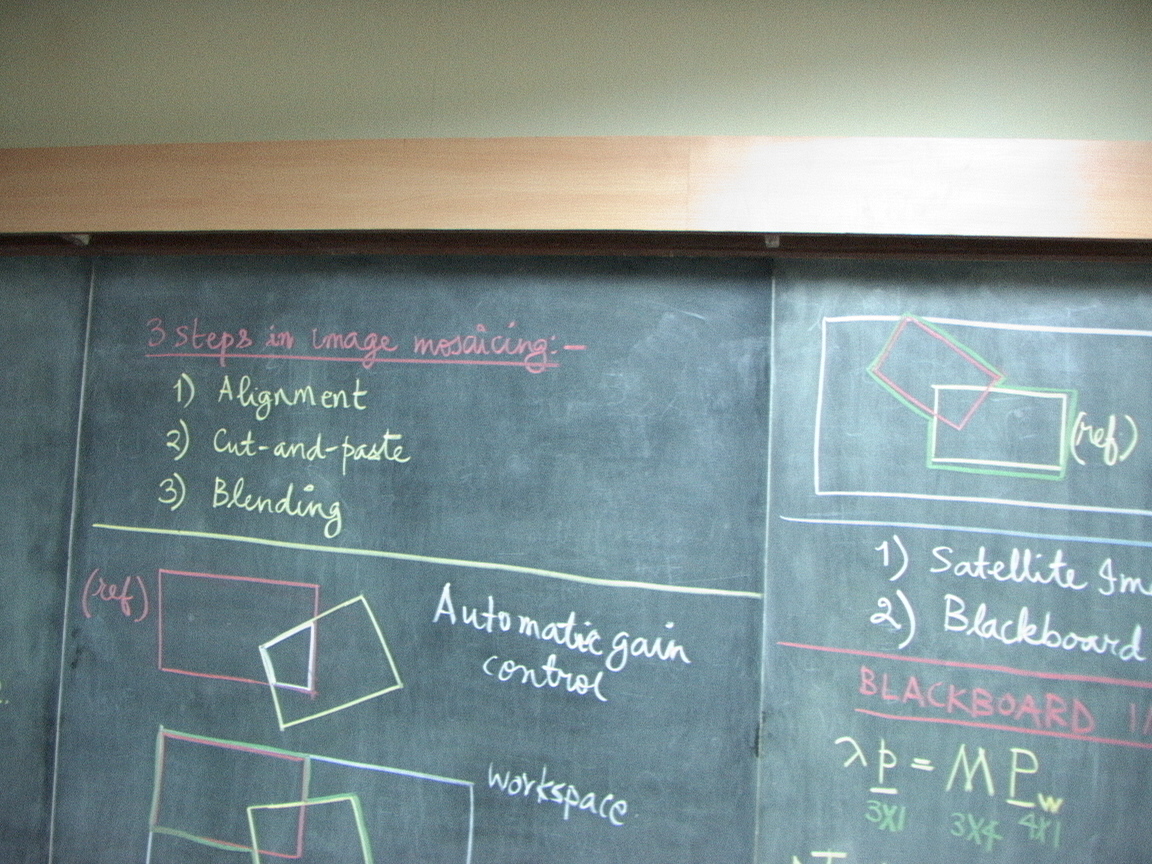 3 Steps in image mosaicing:-
1) Alignment
2) Cut-and-paste
3) Blending
(ref)
Automatic gain
control
workspace
(ref)
1) Satellite
2) Blackboard
BLACKBOARD
λp = M P_w
3X1 3X4 4X1